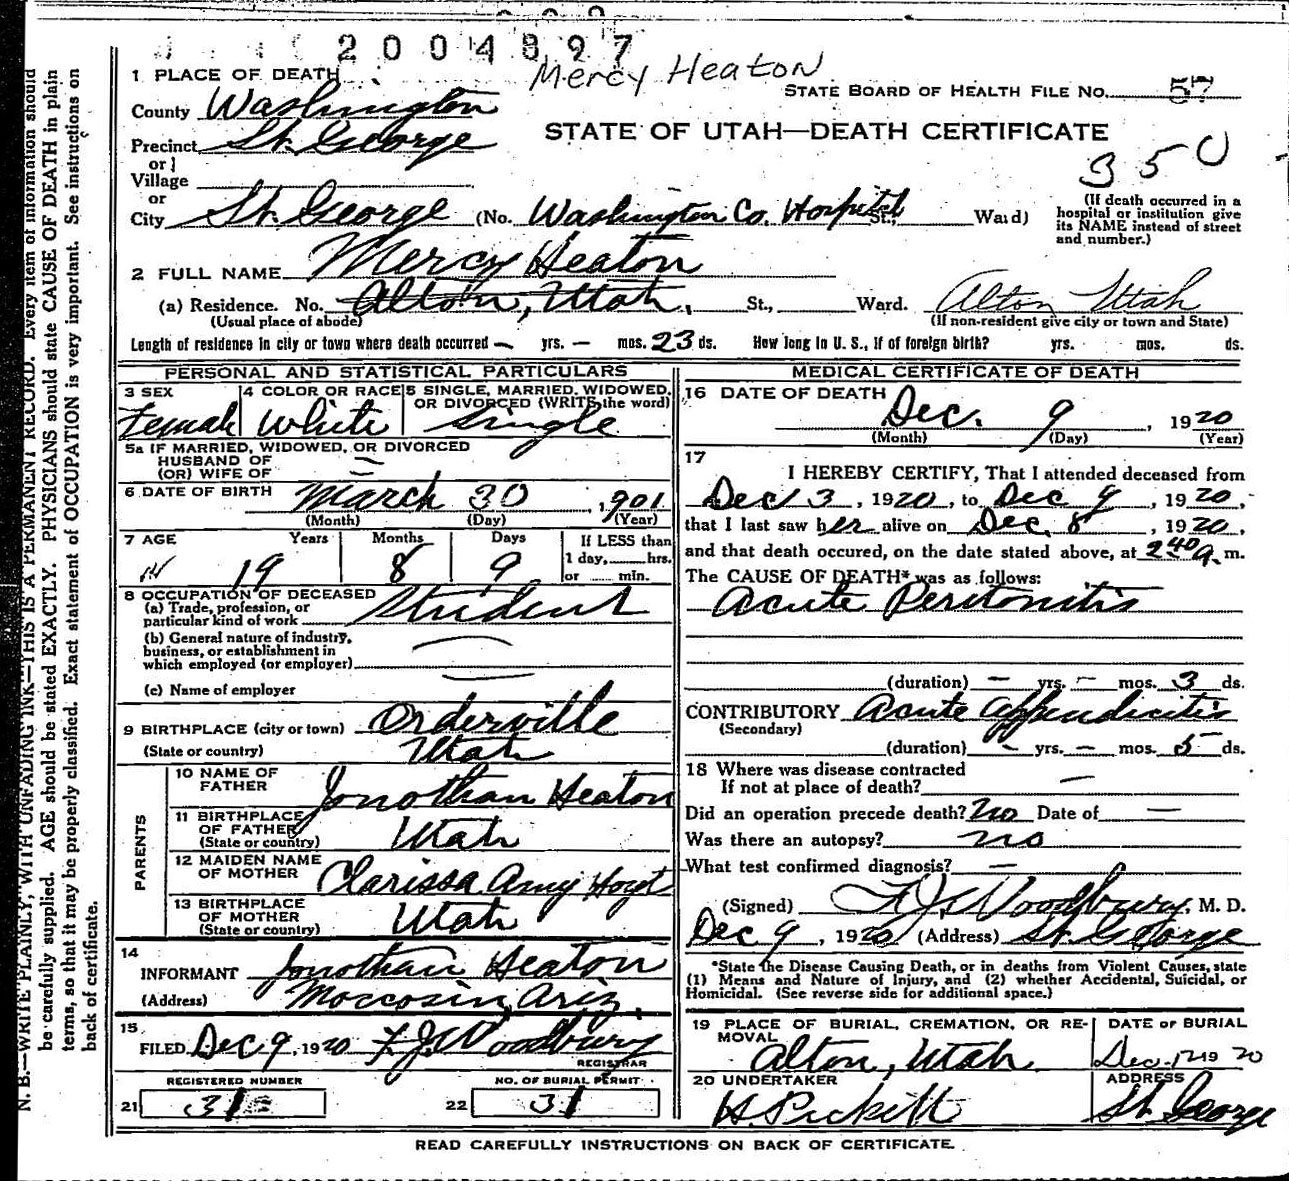 2004897
Mercy Heaton
1 PLACE OF DEATH
STATE BOARD OF HEALTH FILE No. 57
County Washington
STATE OF UTAH—DEATH CERTIFICATE
Precinct St. George
or
350
Village
or
City St. George (No. Washington Co. Hospital St., Ward)
(If death occurred in a hospital or institution give its NAME instead of street and number.)
2 FULL NAME Mercy Heaton
(a) Residence. No. Alton, Utah, St., Ward. Alton Utah
(Usual place of abode) (If non-resident give city or town and State)
Length of residence in city or town where death occurred — yrs. — mos. 23 ds. How long in U. S., if of foreign birth? yrs. mos. ds.
PERSONAL AND STATISTICAL PARTICULARS
3 SEX 4 COLOR OR RACE 5 SINGLE, MARRIED, WIDOWED, OR DIVORCED (WRITE the word)
Female White Single
5a IF MARRIED, WIDOWED, OR DIVORCED
HUSBAND OF —
(OR) WIFE OF —
6 DATE OF BIRTH March 30, 1901
(Month) (Day) (Year)
7 AGE Years Months Days If LESS than
1 day, hrs.
19 8 9 or min.
8 OCCUPATION OF DECEASED
(a) Trade, profession, or
particular kind of work Student
(b) General nature of industry,
business, or establishment in
which employed (or employer)
(c) Name of employer
9 BIRTHPLACE (city or town) Orderville
(State or country) Utah
PARENTS
10 NAME OF
FATHER Jonothan Heaton
11 BIRTHPLACE
OF FATHER Utah
(State or country)
12 MAIDEN NAME
OF MOTHER Clarissa Amy Hoyt
13 BIRTHPLACE
OF MOTHER Utah
(State or country)
14
INFORMANT Jonothan Heaton
(Address) Moccosin, Ariz.
15
FILED Dec 9, 1920 F. J. Woodbury
REGISTRAR
REGISTERED NUMBER NO. OF BURIAL PERMIT
21 31 22 31
MEDICAL CERTIFICATE OF DEATH
16 DATE OF DEATH
Dec. 9, 1920
(Month) (Day) (Year)
17
I HEREBY CERTIFY, That I attended deceased from
Dec 3, 1920, to Dec 9, 1920,
that I last saw her alive on Dec. 8, 1920,
and that death occured, on the date stated above, at 2 40 a. m.
The CAUSE OF DEATH* was as follows:
Acute Peritonitis
(duration) — yrs. — mos. 3 ds.
CONTRIBUTORY Acute Appendicitis
(Secondary)
(duration) — yrs. — mos. 5 ds.
18 Where was disease contracted
If not at place of death? —
Did an operation precede death? No Date of —
Was there an autopsy? no
What test confirmed diagnosis? —
(Signed) F. J. Woodbury, M. D.
Dec 9, 1920 (Address) St. George
*State the Disease Causing Death, or in deaths from Violent Causes, state
(1) Means and Nature of Injury, and (2) whether Accidental, Suicidal, or
Homicidal. (See reverse side for additional space.)
19 PLACE OF BURIAL, CREMATION, OR RE- DATE OF BURIAL
MOVAL
Alton, Utah Dec. 12 1920
20 UNDERTAKER ADDRESS
H. Pickett St. George
READ CAREFULLY INSTRUCTIONS ON BACK OF CERTIFICATE.
N. B.—WRITE PLAINLY, WITH UNFADING INK—THIS IS A PERMANENT RECORD. Every item of information should
be carefully supplied. AGE should be stated EXACTLY. PHYSICIANS should state CAUSE OF DEATH in plain
terms, so that it may be properly classified. Exact statement of OCCUPATION is very important. See instructions on
back of certificate.